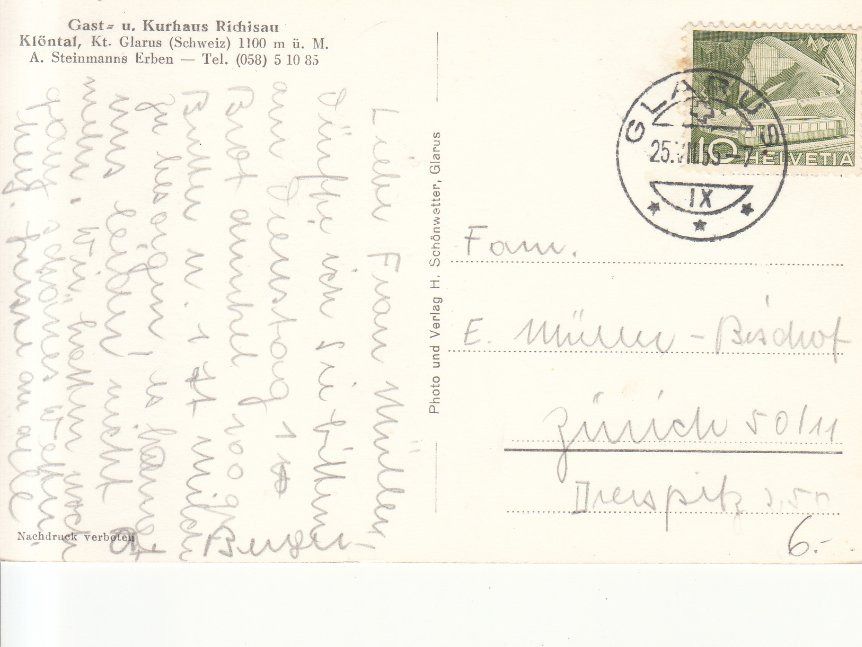 Gast- u. Kurhaus Richisau
Klöntal, Kt. Glarus (Schweiz) 1100 m ü. M.
A. Steinmanns Erben — Tel. (058) 5 10 85
Liebe Frau Müller
Dürfte ich Sie bitten
am Dienstag 1 tt
Brot dunkel 100 gr
Butter u. 1 lt Milch
zu besorgen! es langt
uns leider nicht
mehr. Wir hatten noch
ganz schönes Wetter
Herzl. Grüsse an alle
Berger
Nachdruck verboten
Photo und Verlag H. Schönwetter, Glarus
GLARUS
25.VII.55-7
IX
10 HELVETIA
Fam.
E. Müller-Bischof
Zürich 50/11
Dreispitz
6.-